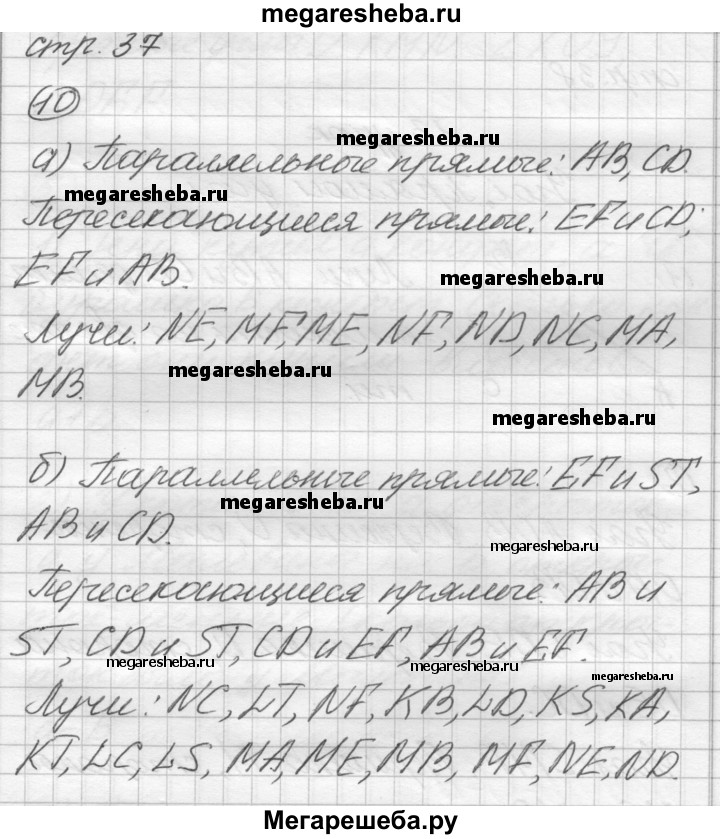 megaresheba.ru
стр. 37
10
megaresheba.ru
а) Параллельные прямые: AB, CD.
megaresheba.ru
Пересекающиеся прямые: EF и CD;
EF и AB.
megaresheba.ru
Лучи: NE, MF, ME, NF, ND, NC, MA,
megaresheba.ru
MB.
megaresheba.ru
б) Параллельные прямые: EF и ST,
megaresheba.ru
AB и CD.
megaresheba.ru
Пересекающиеся прямые: AB и
ST, CD и ST, CD и EF, AB и EF.
megaresheba.ru
megaresheba.ru
megaresheba.ru
Лучи: NC, LT, NF, KB, LD, KS, KA,
KT, LC, LS, MA, ME, MB, MF, NE, ND.
Мегарешеба.ру